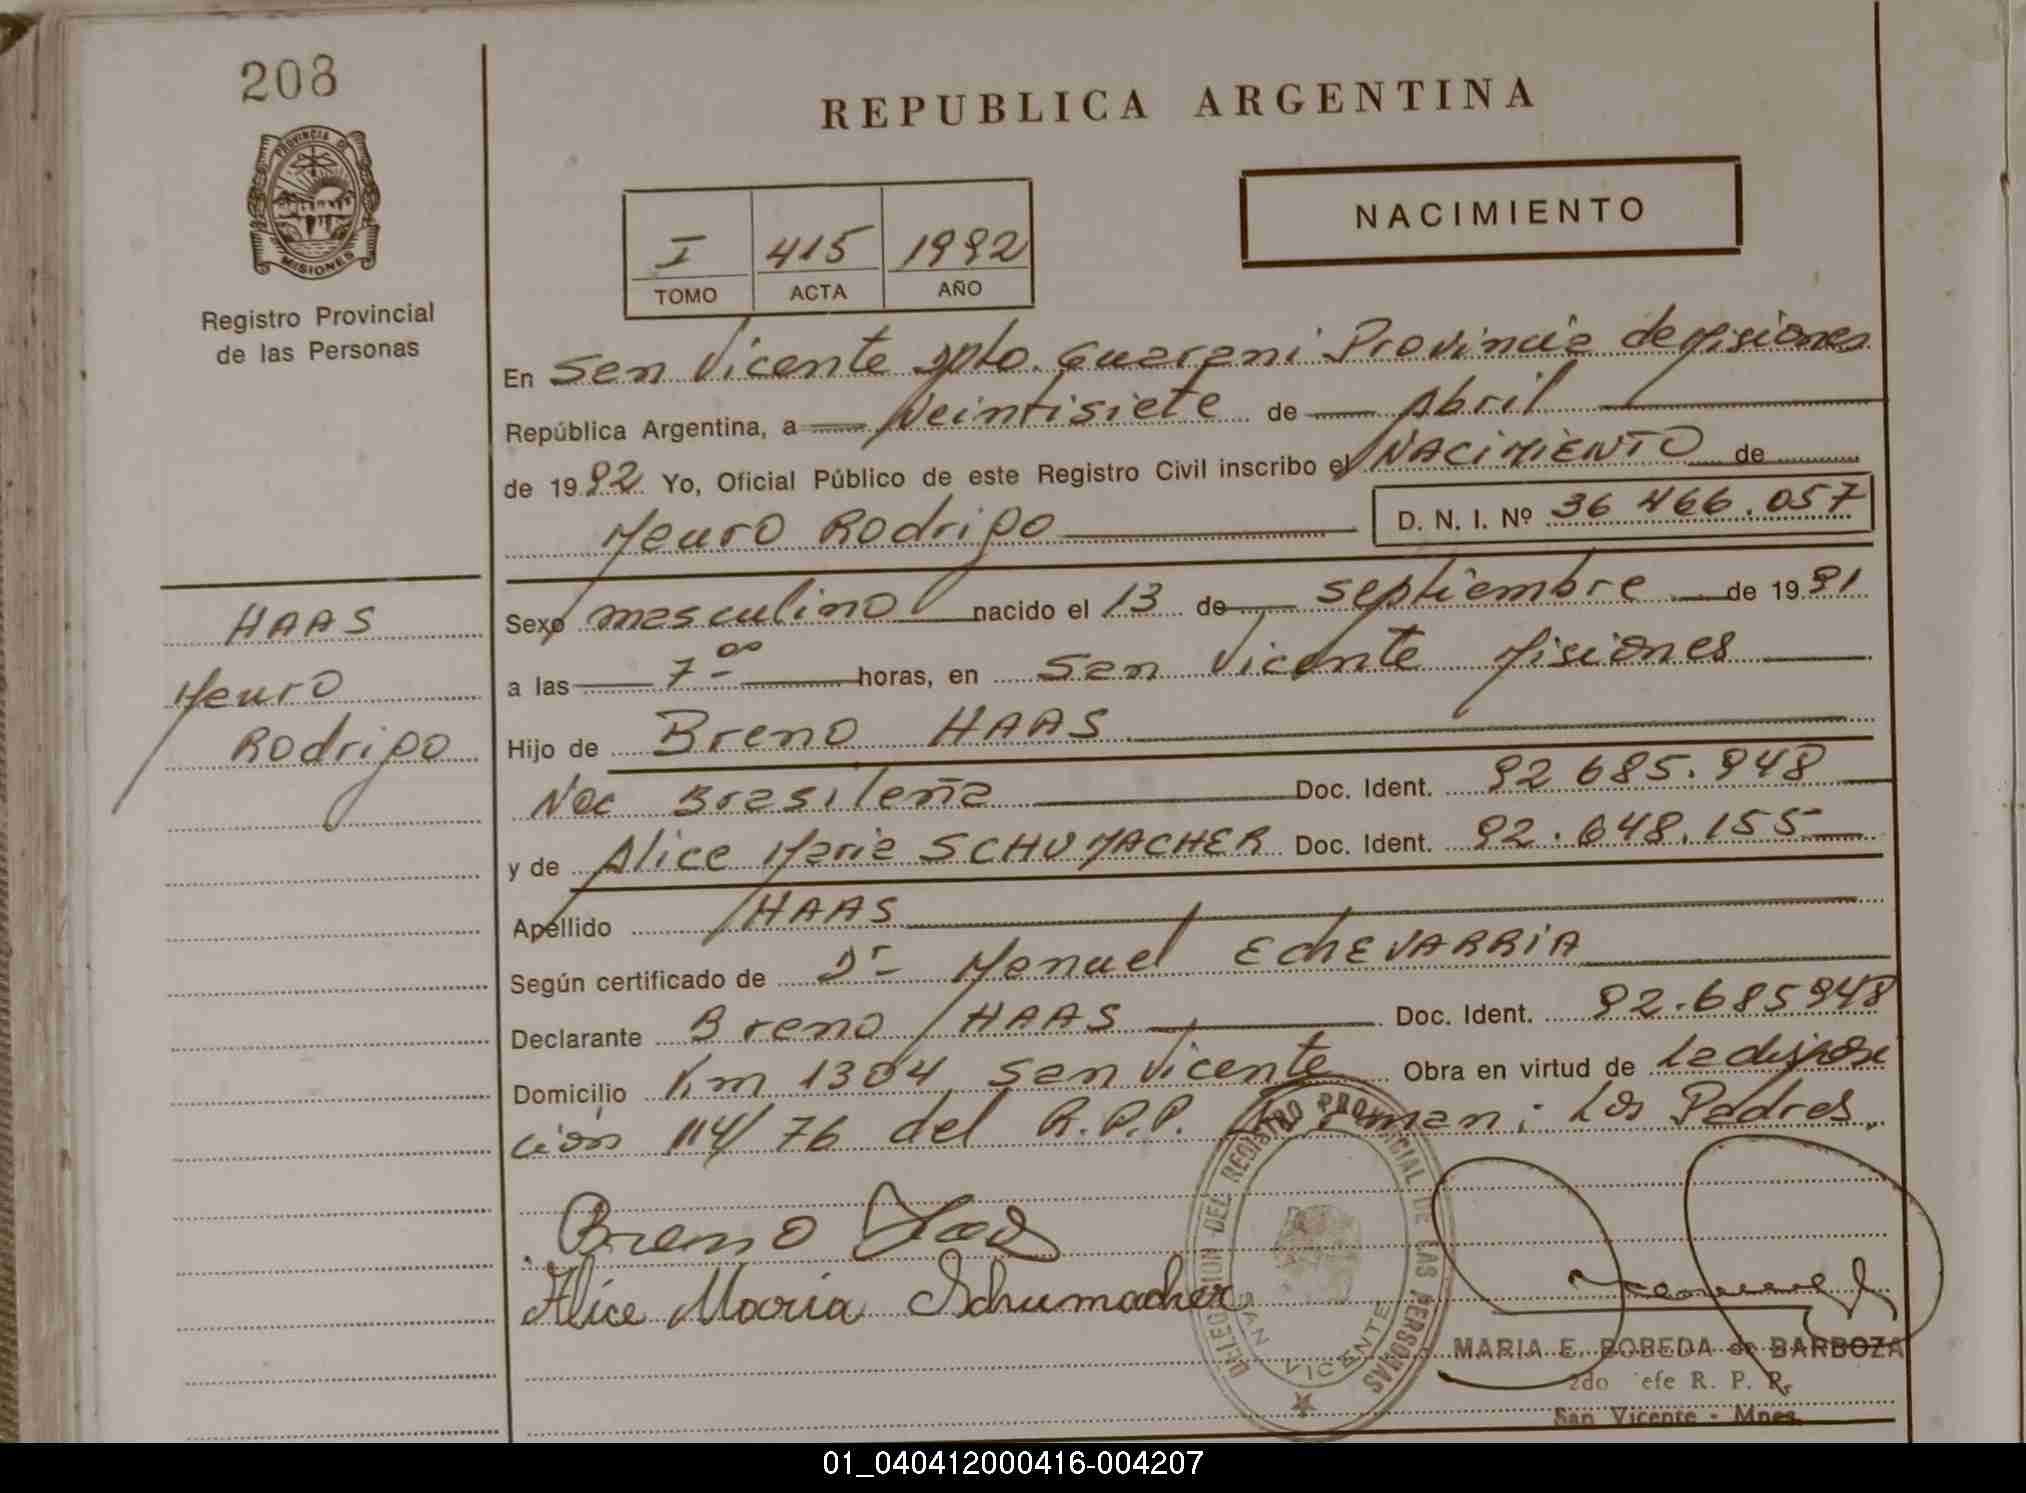 208
PROVINCIA DE
MISIONES
Registro Provincial
de las Personas
REPUBLICA ARGENTINA
NACIMIENTO
I 415 1992
TOMO ACTA AÑO
En San Vicente Dpto. Guarani Provincia de Misiones
República Argentina, a veintisiete de Abril
de 1992 Yo, Oficial Público de este Registro Civil inscribo el NACIMIENTO de
Mauro Rodrigo D. N. I. Nº 36 466.057
HAAS
Mauro
Rodrigo
Sexo masculino nacido el 13 de septiembre de 1991
a las 7 00 horas, en San Vicente Misiones
Hijo de Breno HAAS
Nac Brasileña Doc. Ident. 92 685.948
y de Alice Maria SCHUMACHER Doc. Ident. 92.648.155
Apellido HAAS
Según certificado de Dr Manuel EchEVARRIA
Declarante Breno HAAS Doc. Ident. 92.685948
Domicilio Km 1304 San Vicente Obra en virtud de La disposi
ción 114/76 del R.P.P. Firman: Los Padres
Breno Haas
Alice Maria Schumacher
DELEGACION DEL REGISTRO PROVINCIAL DE LAS PERSONAS
SAN VICENTE
MARIA E. BOBEDA de BARBOZA
2do Jefe R. P. P.
San Vicente - Mnes.
01_040412000416-004207